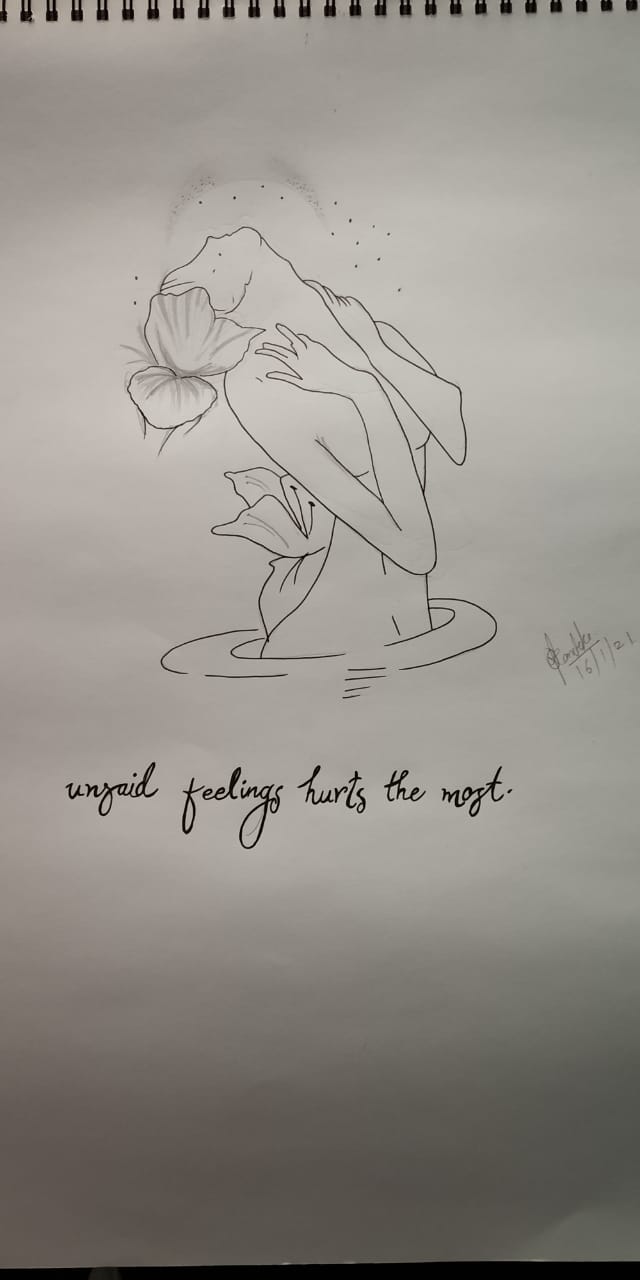 16/1/21
unsaid feelings hurts the most.